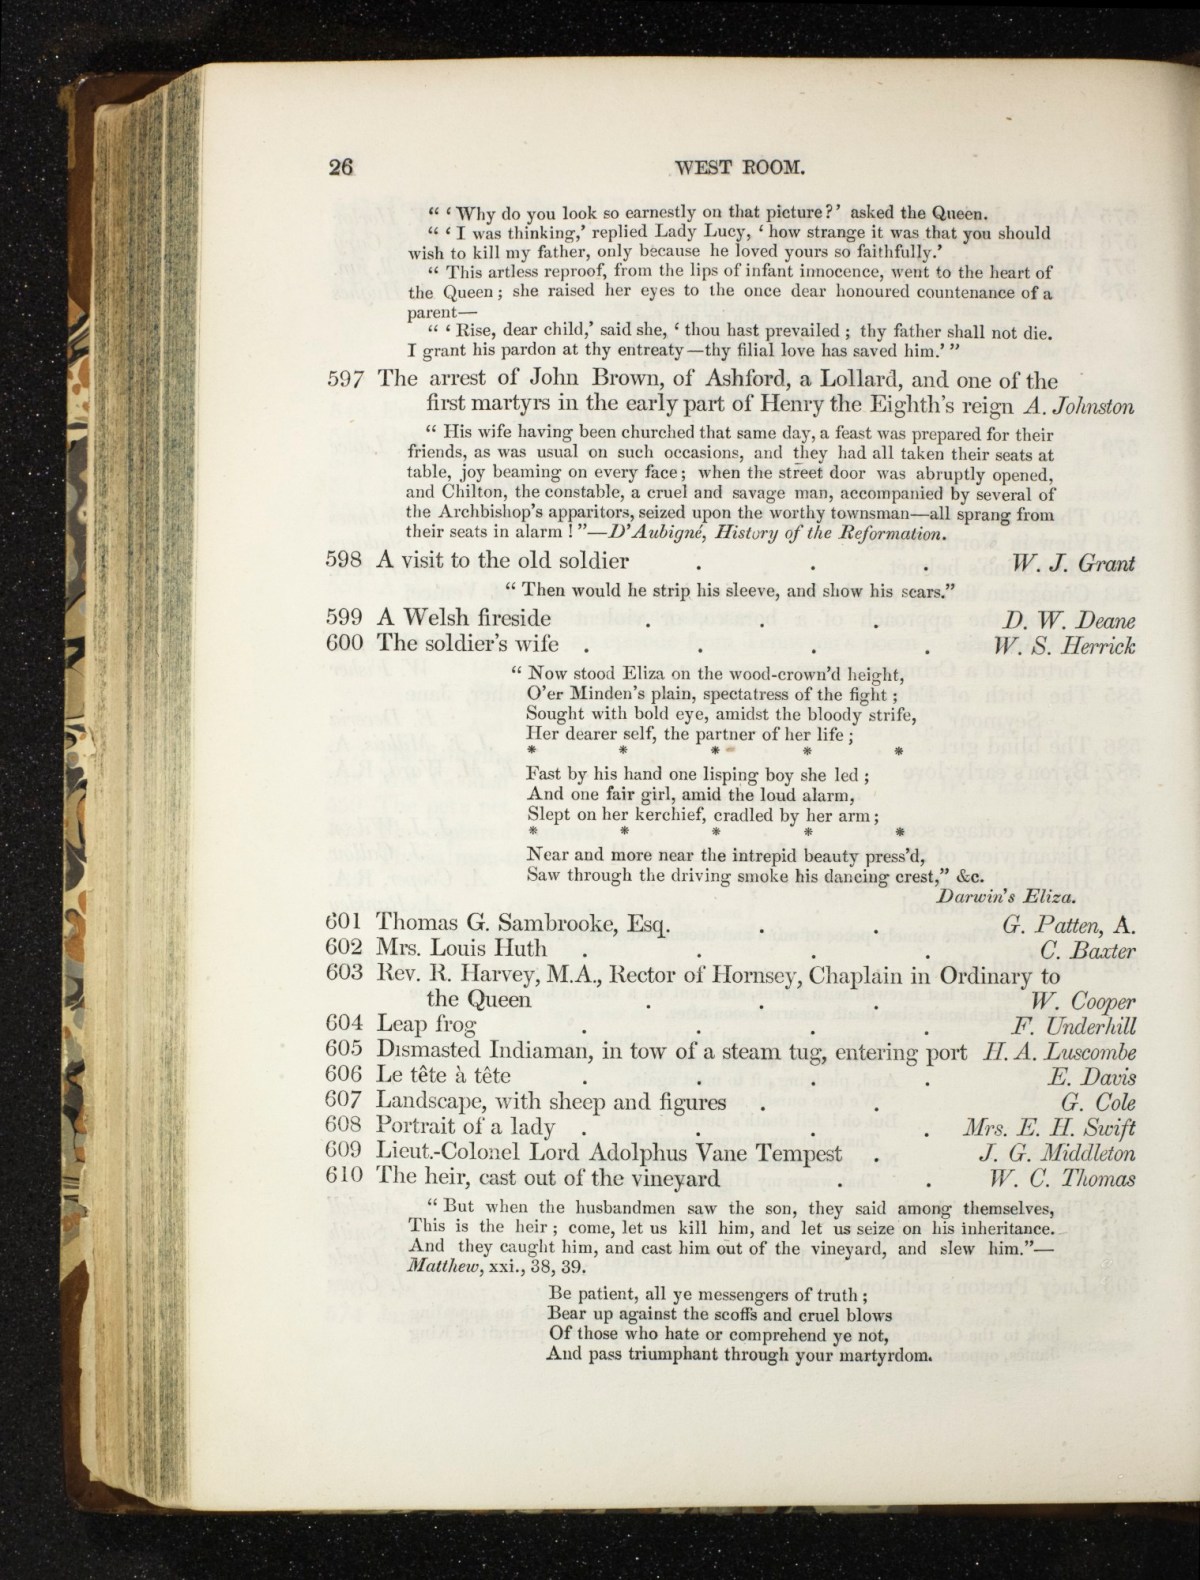 26 WEST ROOM.
“ ‘ Why do you look so earnestly on that picture ? ’ asked the Queen.
“ ‘ I was thinking,’ replied Lady Lucy, ‘ how strange it was that you should
wish to kill my father, only because he loved yours so faithfully.’
“ This artless reproof, from the lips of infant innocence, went to the heart of
the Queen ; she raised her eyes to the once dear honoured countenance of a
parent—
“ ‘ Rise, dear child,’ said she, ‘ thou hast prevailed ; thy father shall not die.
I grant his pardon at thy entreaty—thy filial love has saved him.’ ”
597 The arrest of John Brown, of Ashford, a Lollard, and one of the
first martyrs in the early part of Henry the Eighth’s reign A. Johnston
“ His wife having been churched that same day, a feast was prepared for their
friends, as was usual on such occasions, and they had all taken their seats at
table, joy beaming on every face ; when the street door was abruptly opened,
and Chilton, the constable, a cruel and savage man, accompanied by several of
the Archbishop’s apparitors, seized upon the worthy townsman—all sprang from
their seats in alarm ! ”—D’Aubigné, History of the Reformation.
598 A visit to the old soldier . . . W. J. Grant
“ Then would he strip his sleeve, and show his scars.”
599 A Welsh fireside . . . D. W. Deane
600 The soldier’s wife . . . . W. S. Herrick
“ Now stood Eliza on the wood-crown’d height,
O’er Minden’s plain, spectatress of the fight ;
Sought with bold eye, amidst the bloody strife,
Her dearer self, the partner of her life ;
* * * * *
Fast by his hand one lisping boy she led ;
And one fair girl, amid the loud alarm,
Slept on her kerchief, cradled by her arm ;
* * * * *
Near and more near the intrepid beauty press’d,
Saw through the driving smoke his dancing crest,” &c.
Darwin’s Eliza.
601 Thomas G. Sambrooke, Esq. . . G. Patten, A.
602 Mrs. Louis Huth . . . . C. Baxter
603 Rev. R. Harvey, M.A., Rector of Hornsey, Chaplain in Ordinary to
the Queen . . . W. Cooper
604 Leap frog . . . . F. Underhill
605 Dismasted Indiaman, in tow of a steam tug, entering port H. A. Luscombe
606 Le tête à tête . . . . E. Davis
607 Landscape, with sheep and figures . . G. Cole
608 Portrait of a lady . . . . Mrs. E. H. Swift
609 Lieut.-Colonel Lord Adolphus Vane Tempest . J. G. Middleton
610 The heir, cast out of the vineyard . . W. C. Thomas
“ But when the husbandmen saw the son, they said among themselves,
This is the heir ; come, let us kill him, and let us seize on his inheritance.
And they caught him, and cast him out of the vineyard, and slew him.”—
Matthew, xxi., 38, 39.
Be patient, all ye messengers of truth ;
Bear up against the scoffs and cruel blows
Of those who hate or comprehend ye not,
And pass triumphant through your martyrdom.